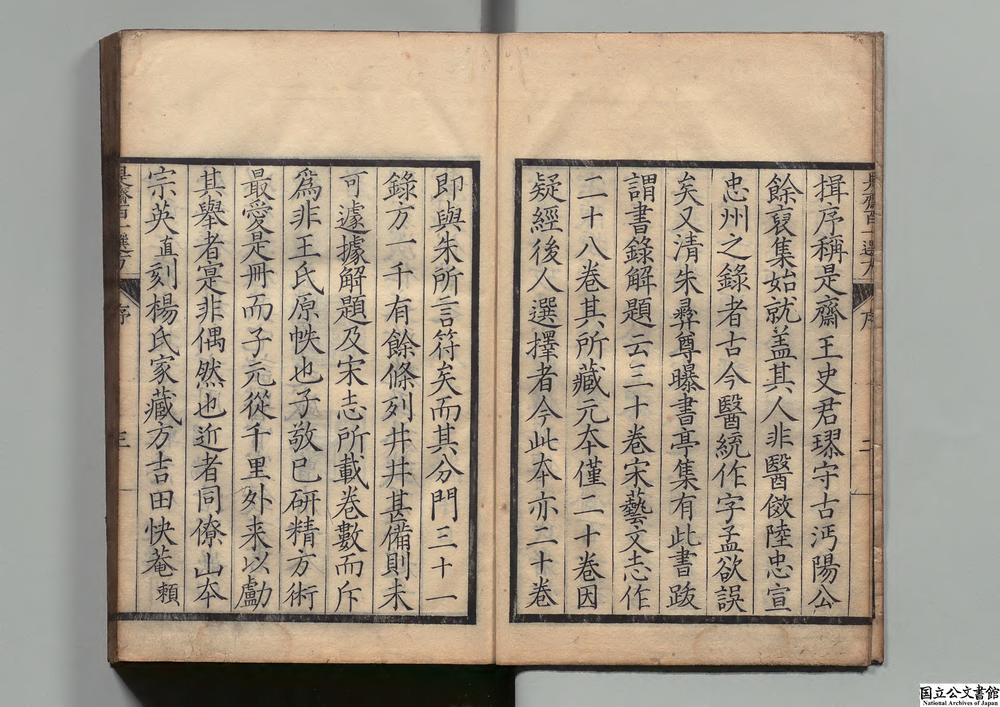 揖序稱是齋王史君璆守古沔陽公
餘裒集始就盖其人非醫倣陸忠宣
忠州之錄者古今醫統作字孟欲誤
矣又清朱彝尊曝書亭集有此書跋
謂書錄解題云三十卷宋藝文志作
二十八卷其所藏元本僅二十卷因
疑經後人選擇者今此本亦二十卷
即與朱所言符矣而其分門三十一
錄方一千有餘條列井井甚備則未
可遽據解題及宋志所載卷數而斥
爲非王氏原帙也子敬已研精方術
最愛是冊而子元從千里外来以勮
其舉者寔非偶然也近者同僚山本
宗英直刻楊氏家藏方吉田快菴頼
是齋百一選方
序
三
序
二
国立公文書館
National Archives of Japan